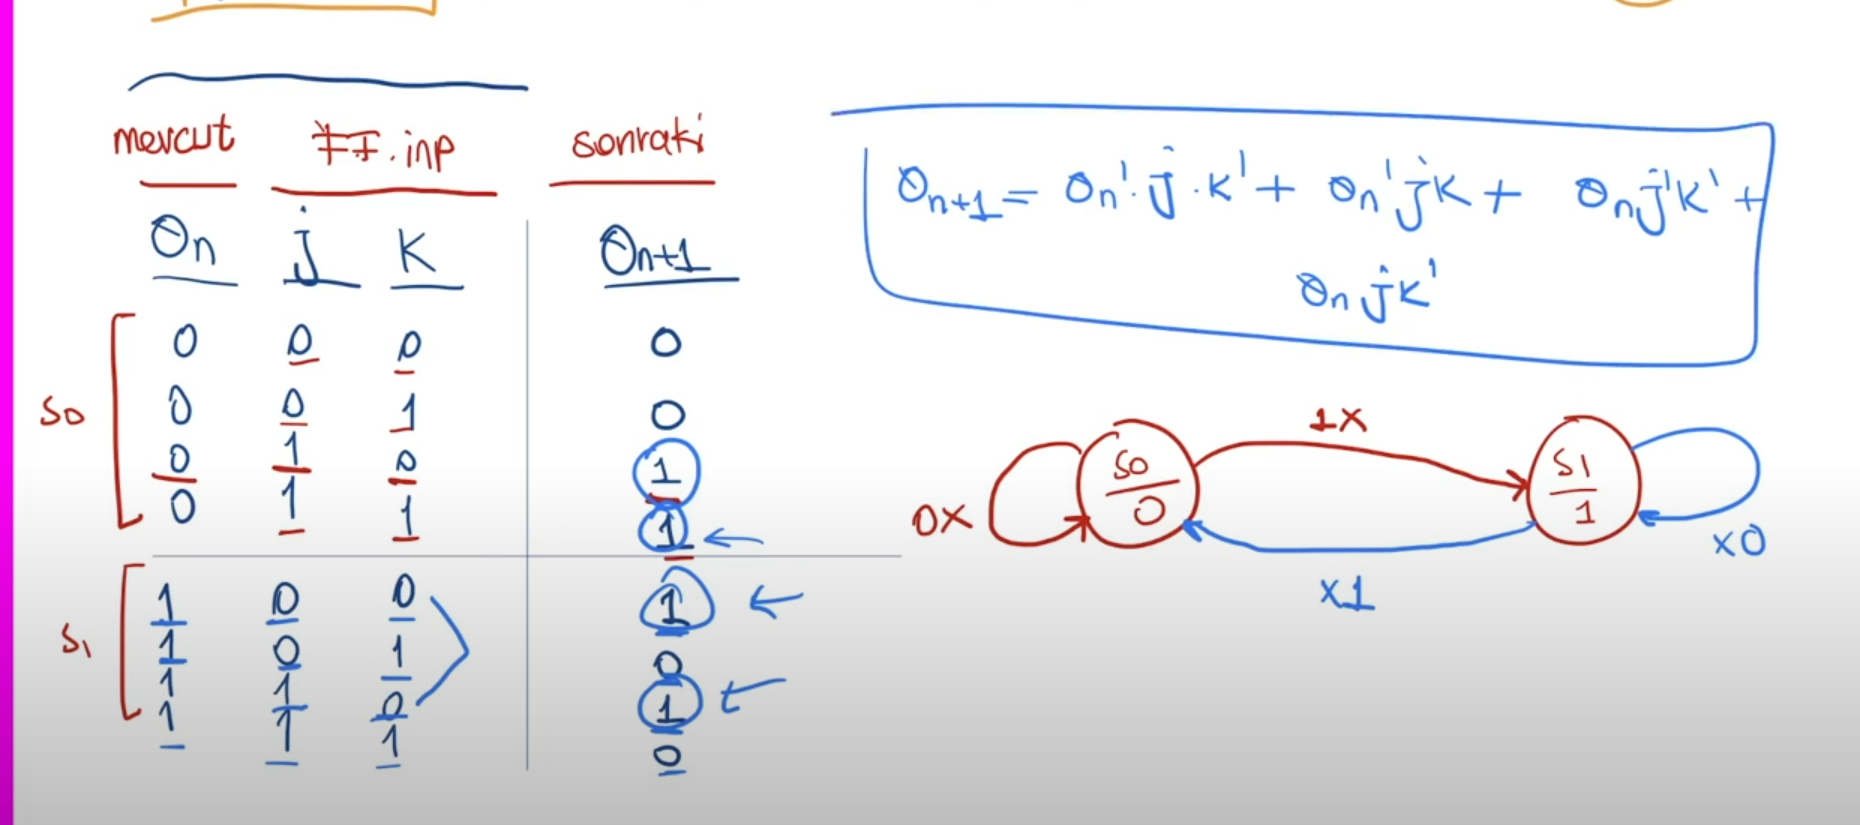 mevcut FF.inp sonraki
Qn j K Qn+1
0 0 0 0
0 0 1 0
0 1 0 1
0 1 1 1
1 0 0 1
1 0 1 0
1 1 0 1
1 1 1 0
S0
S1
Qn+1 = Qn'.j.K' + Qn'jK + Qnj'K' +
QnjK'
1X
S0
0
S1
1
0X
X0
X1